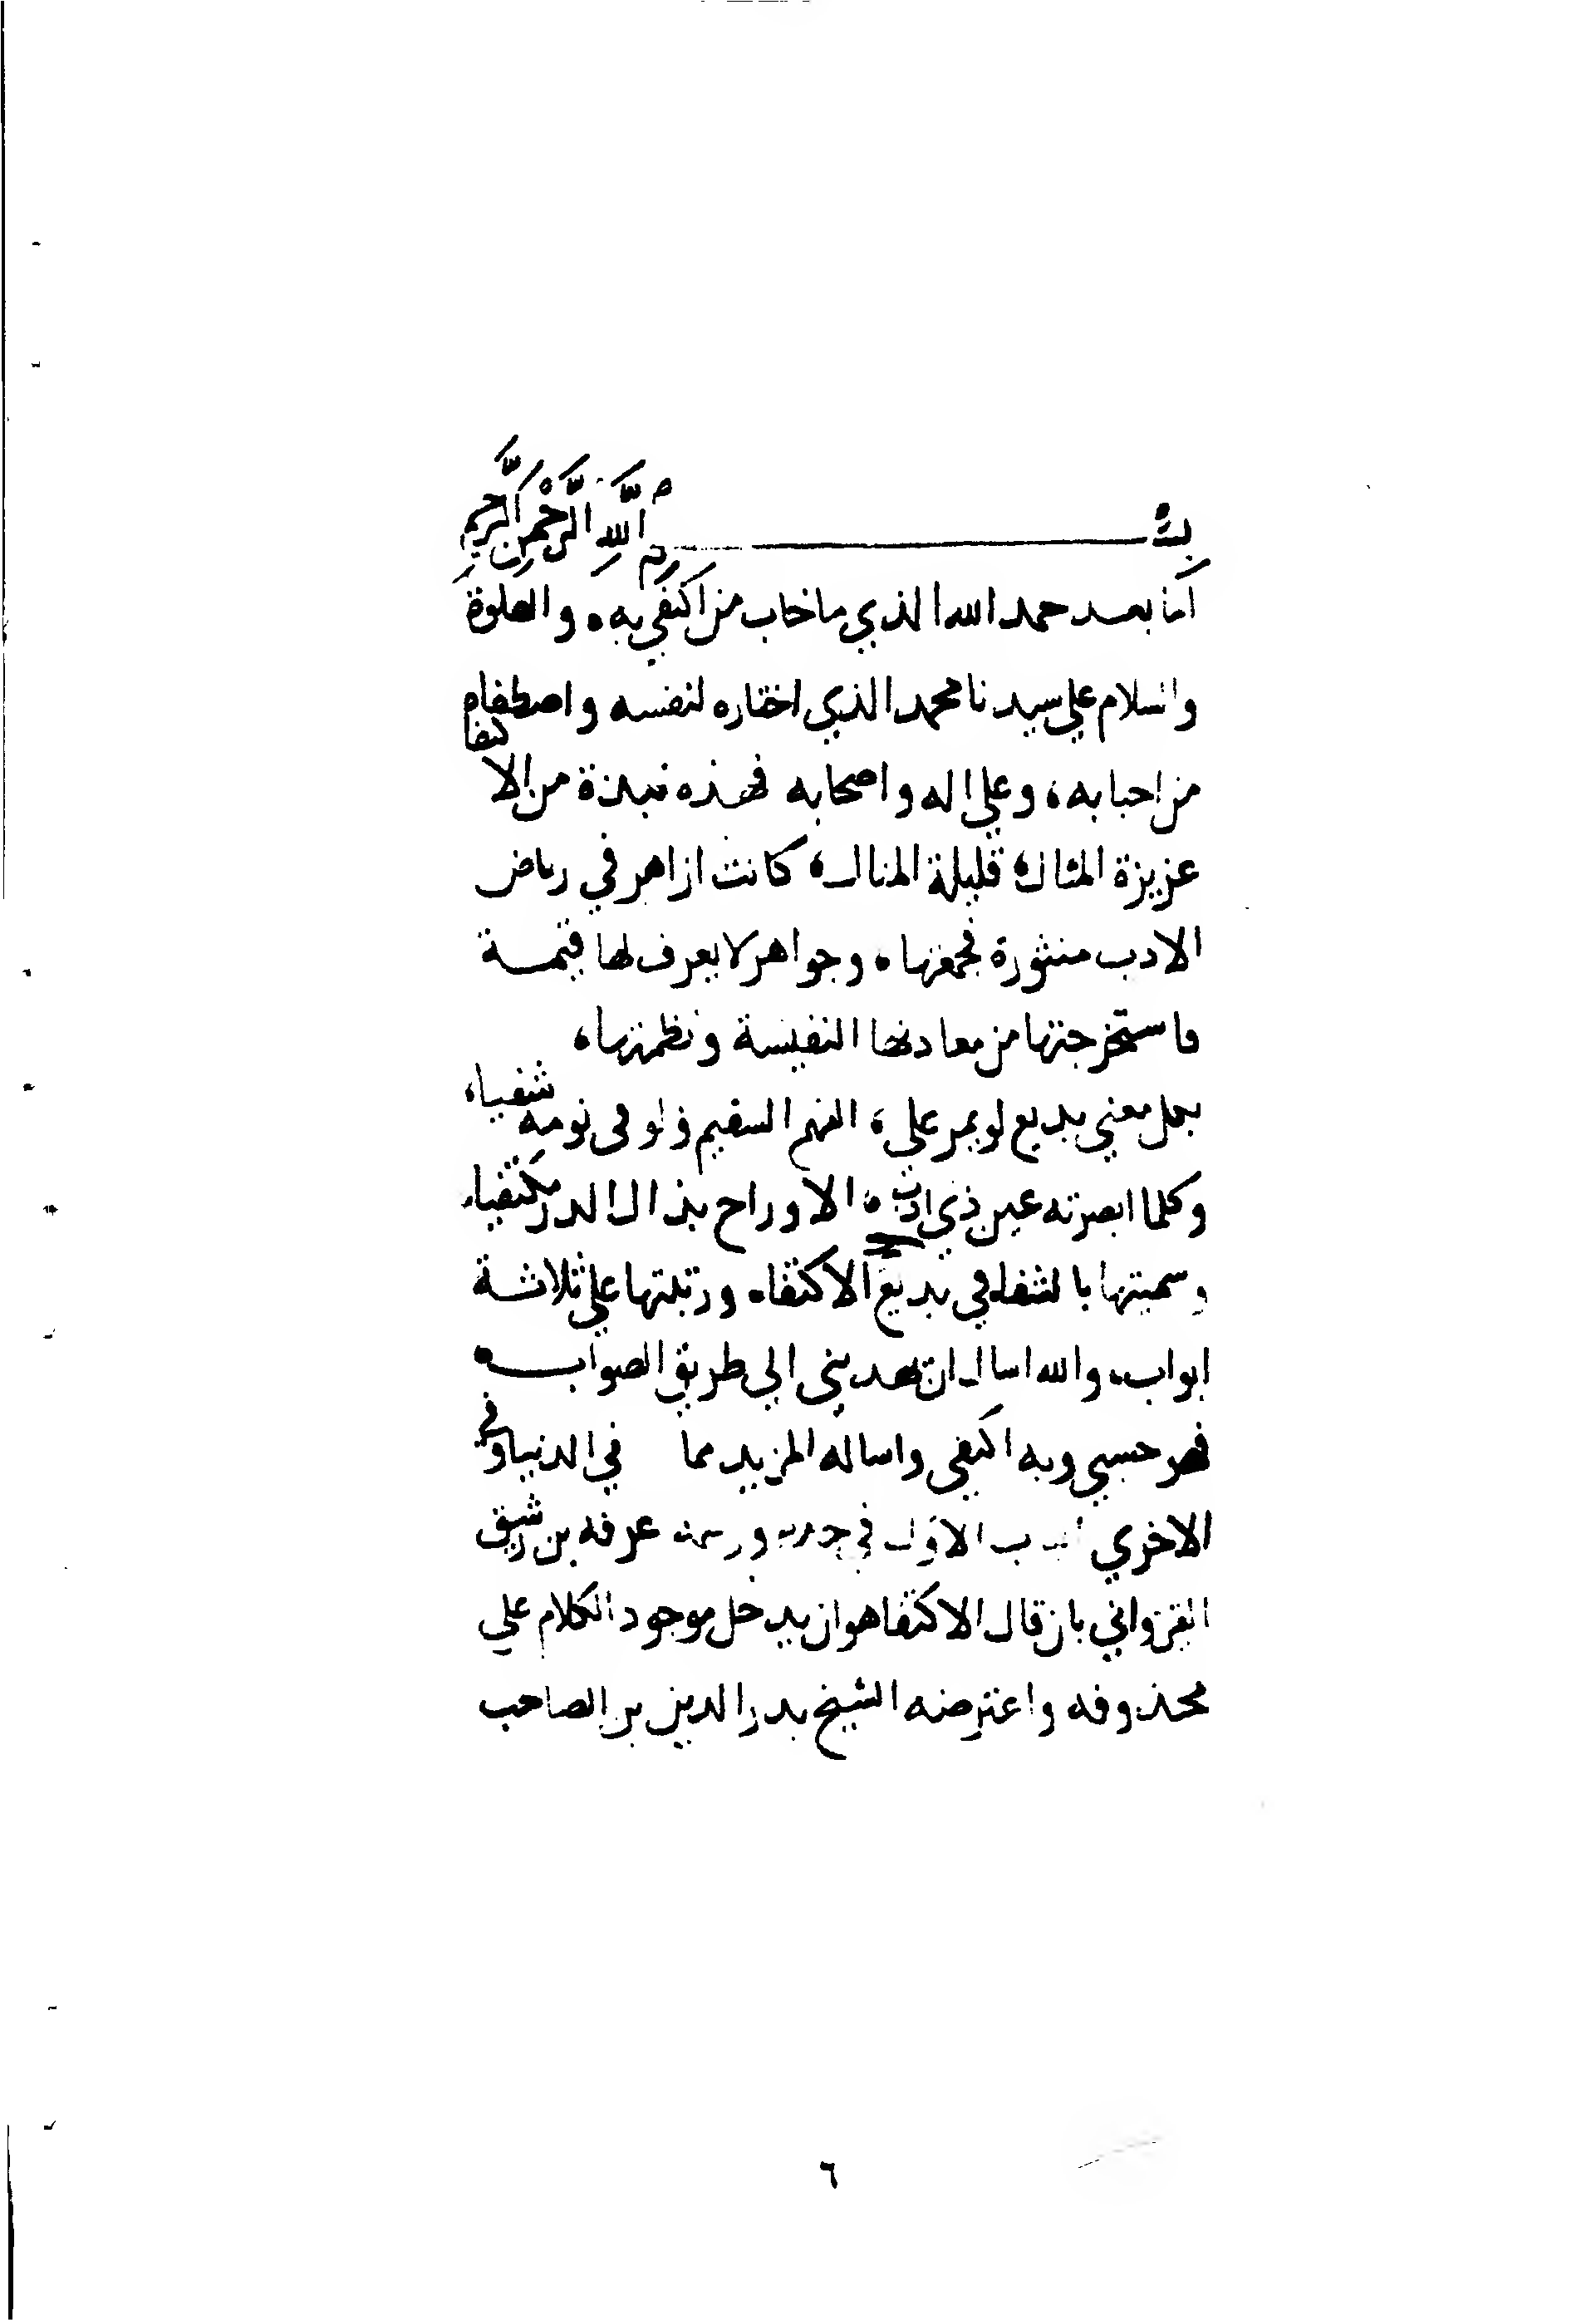 بسم الله الرحمن الرحيم
اما بعد حمد الله الذي ما خاب من اكتفي به، والصلوة
والسلام علي سيدنا محمد الذي اختاره لنفسه واصطفاه
من احبابه، وعلي اله واصحابه فهذه نبذة من الاكتفا
عزيزة المثال، قليلة المنال، كانت ازاهر في رياض
الادب منثورة فجمعتها، وجواهر لا يعرف لها قيمة
فاستخرجتها من معادنها النفيسة ونظمتها،
بكل معني بديع لو يمر علي، الفهم السقيم ولو في نومه شفيا،
وكلما ابصرته عين ذي ادب، الا وراح بذاك الدر مكتفيا،
وسميتها بالشفاء في بديع الاكتفاء ورتبتها علي ثلاثة
ابواب، والله اسال ان يهديني الي طريق الصواب
فهو حسبي وبه اكتفي واساله المزيد مما في الدنيا وفي
الاخري الاول في عرفه بن رشيق
القيرواني بان قال الاكتفا هو ان يدخل موجود الكلام علي
محذوفه واعترضه الشيخ بدر الدين بن الصاحب
٦